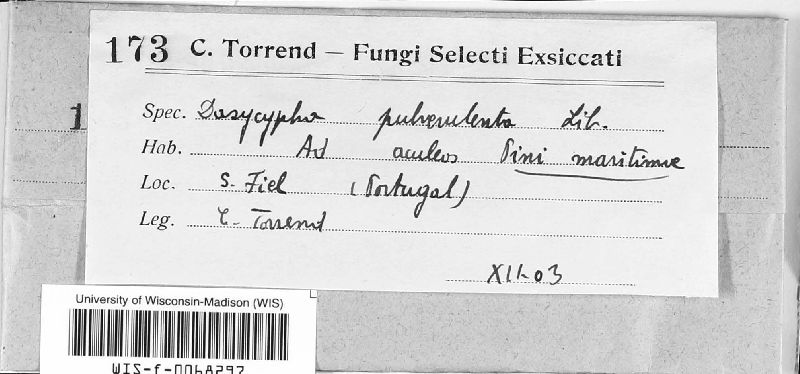 173 C. Torrend — Fungi Selecti Exsiccati
1
Spec. Dasycypha pulverulenta Lib.
Hab. Ad aculeos Pini maritimae
Loc. S. Fiel (Portugal)
Leg. C. Torrend
XII-03
University of Wisconsin-Madison (WIS)
WIS-f-0068297